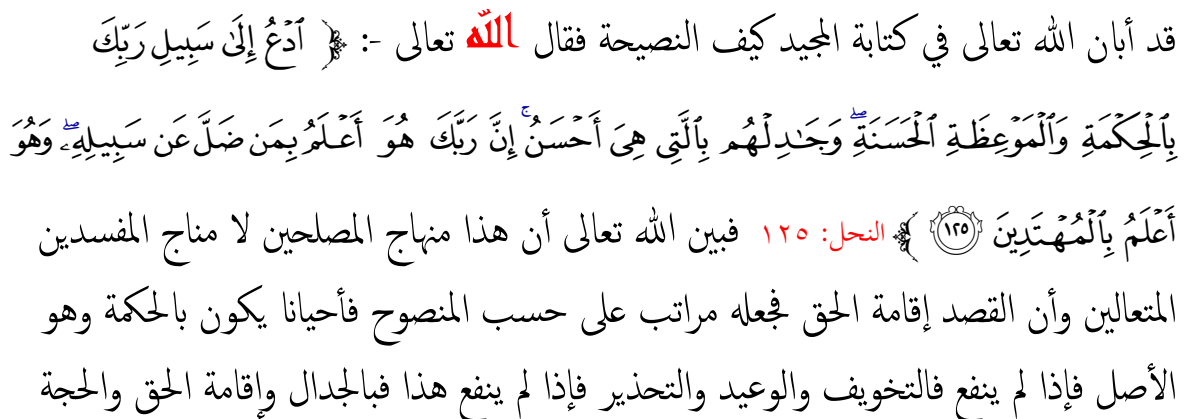 قد أبان الله تعالى في كتابة المجيد كيف النصيحة فقال الله تعالى -: ﴿ ٱدۡعُ إِلَىٰ سَبِيلِ رَبِّكَ
بِٱلۡحِكۡمَةِ وَٱلۡمَوۡعِظَةِ ٱلۡحَسَنَةِۖ وَجَٰدِلۡهُم بِٱلَّتِي هِيَ أَحۡسَنُۚ إِنَّ رَبَّكَ هُوَ أَعۡلَمُ بِمَن ضَلَّ عَن سَبِيلِهِۦۖ وَهُوَ
أَعۡلَمُ بِٱلۡمُهۡتَدِينَ ١٢٥ ﴾ النحل: ١٢٥ فبين الله تعالى أن هذا منهاج المصلحين لا مناج المفسدين
المتعالين وأن القصد إقامة الحق فجعله مراتب على حسب المنصوح فأحيانا يكون بالحكمة وهو
الأصل فإذا لم ينفع فالتخويف والوعيد والتحذير فإذا لم ينفع هذا فبالجدال وإقامة الحق والحجة